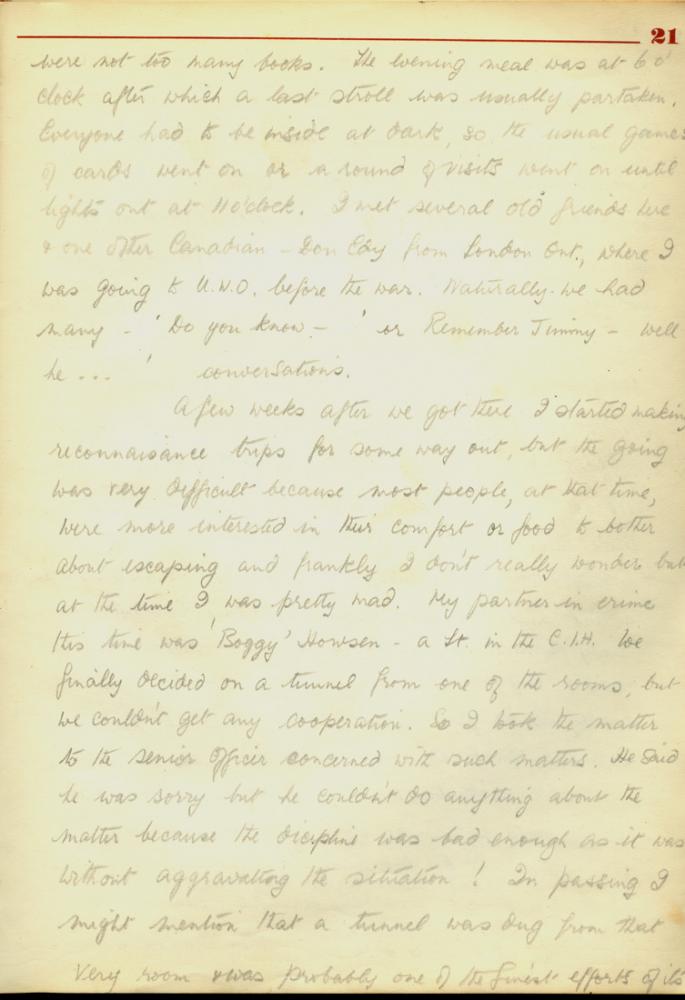 21
were not too many books. The evening meal was at 6 o'
clock after which a last stroll was usually partaken.
Everyone had to be inside at dark, so the usual games
of cards went on or a round of visits went on until
lights out at 11 o'clock. I met several old friends here
& one other Canadian - Don Edy from London Ont., where I
was going to U.W.O. before the war. Naturally we had
many - 'Do you know - ' or Remember Jimmy - well
he ... ' conversations.
A few weeks after we got there I started making
reconnaisance trips for some way out, but the going
was very difficult because most people, at that time,
were more interested in their comfort or food to bother
about escaping and frankly I don't really wonder but
at the time I was pretty mad. My partner in crime
this time was 'Boggy' Howsen - a Lt. in the C.I.H. We
finally decided on a tunnel from one of the rooms, but
we couldn't get any cooperation. So I took the matter
to the senior officer concerned with such matters. He said
he was sorry but he couldn't do anything about the
matter because the dicipline was bad enough as it was
without aggravatting the situation! In passing I
might mention that a tunnel was dug from that
very room & was probably one of the finest efforts of its